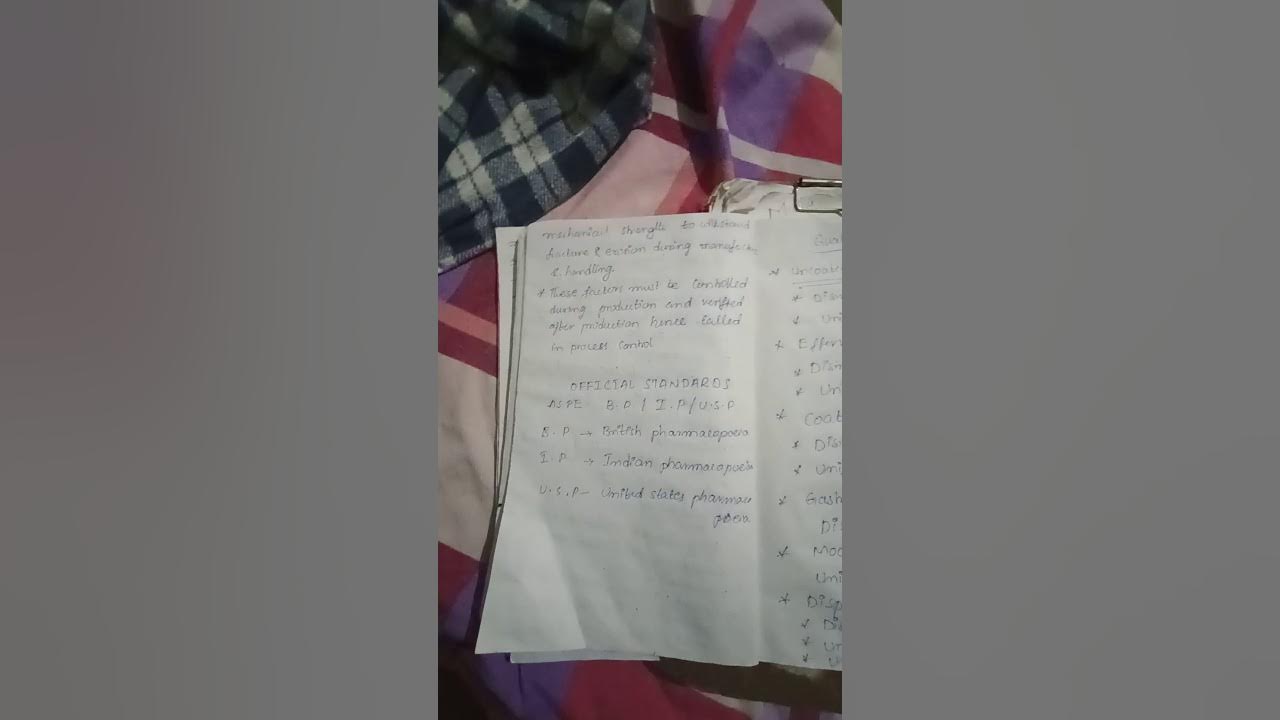 mechanical strength to withstand
fracture & erosion during manufactu
& handling.
* These factors must be controlled
during production and verified
after production hence called
in process control
OFFICIAL STANDARDS
AS PE B.P / I.P / U.S.P
B.P → British pharmacopoeia
I.P → Indian pharmacopoeia
U.S.P - United states pharmaco
poeia
M
Qual
* Uncoate
* Disin
* Uni
* Efferv
* Disin
* Un
* Coat
* Disi
* Uni
* Gast
Di
* Mod
Uni
* Disp
* Di
* Un
* U